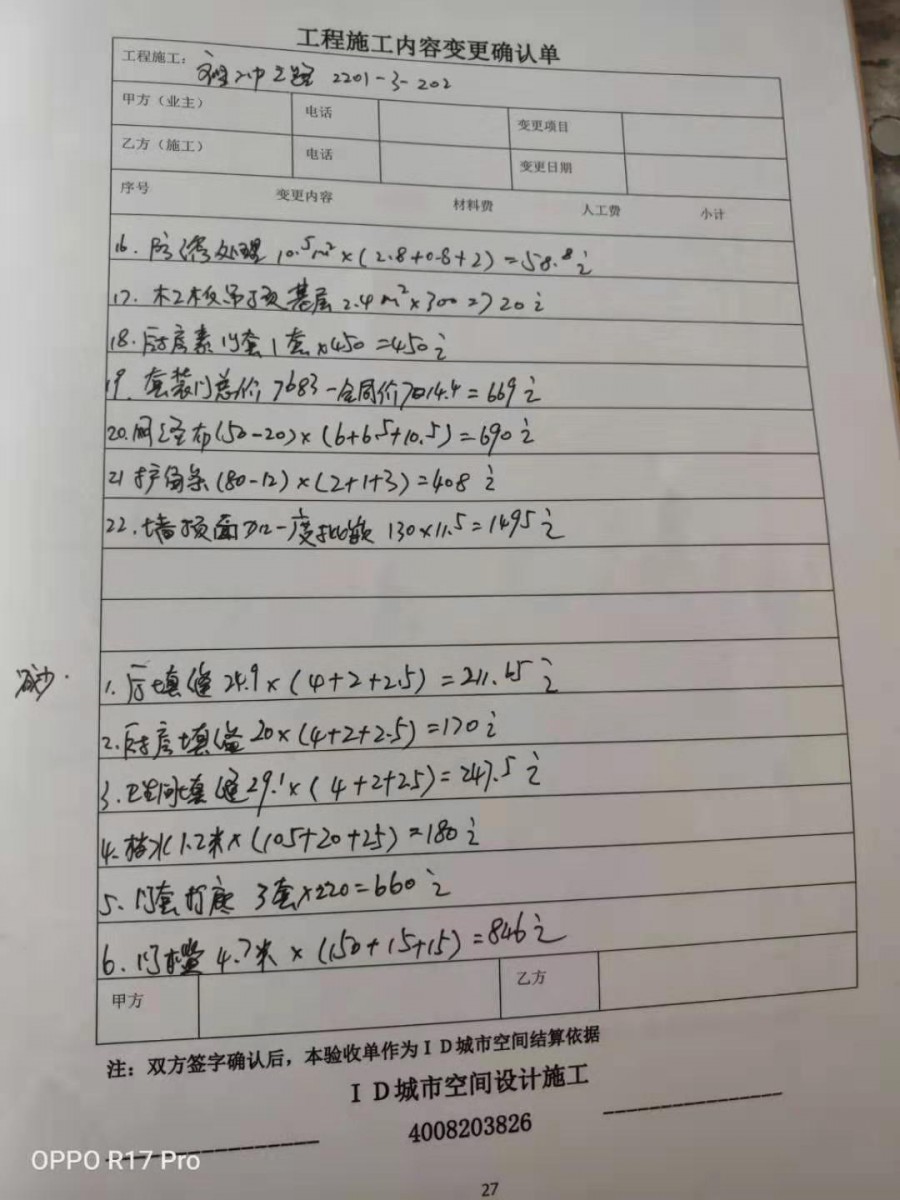 工程施工内容变更确认单
工程施工： 2201-3-202
甲方（业主） 电话 变更项目
乙方（施工） 电话 变更日期
序号 变更内容 材料费 人工费 小计
16. 防潮处理 10.5m²×(2.8+0.8+2)=58.8元
17. 木工板吊顶基层 2.4m²×300=720元
18. 厨房素门套1套×450=450元
19. 套装门总价7683-合同价7014.4=669元
20. 网络布(50-20)×(6+6.5+10.5)=690元
21 护角条(80-12)×(2+1+3)=408元
22. 墙顶面加一度 130×11.5=1495元
减少.
1. 厅填缝 24.9×(4+2+2.5)=211.65元
2. 厨房填缝 20×(4+2+2.5)=170元
3. 卫生间填缝 29.1×(4+2+2.5)=247.5元
4. 挡水1.2米×(105+20+25)=180元
5. 门套打底 3套×220=660元
6. 门槛 4.7米×(150+15+15)=846元
甲方 乙方
注：双方签字确认后，本验收单作为ＩＤ城市空间结算依据
ＩＤ城市空间设计施工
4008203826
27
OPPO R17 Pro